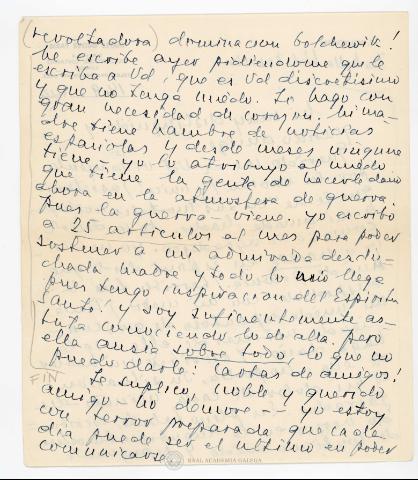 (revoltadora) dominacion bolchewik!
me escribe ayer pidiendome que le
escriba a Vd, que es Vd discretisimo
y que no tenga miedo. Le hago con
gran necesidad de corazon. Mi ma-
dre tiene hambre de noticias
españolas y desde meses ninguna
tiene - yo lo atribuyo al miedo
que tiene la gente de hacerle daño
ahora en la atmosfera de guerra.
pues la guerra - viene. yo escribo
a 25 articulos al mes para poder
sostener a mi admirada desdi-
chada madre y todo lo mio llega
pues tengo inspiracion del Espiritu
Santo! y soy suficientemente as-
tuta conociendo lo de alla. pero
ella ansia sobre todo, lo que no
puedo darle: Cartas de amigos!
FIN
Le suplico, noble y querido
amigo - no demore -- yo estoy
con terror preparada que cada
dia puede ser el ultimo en poder
comunicarse
REAL ACADEMIA GALEGA